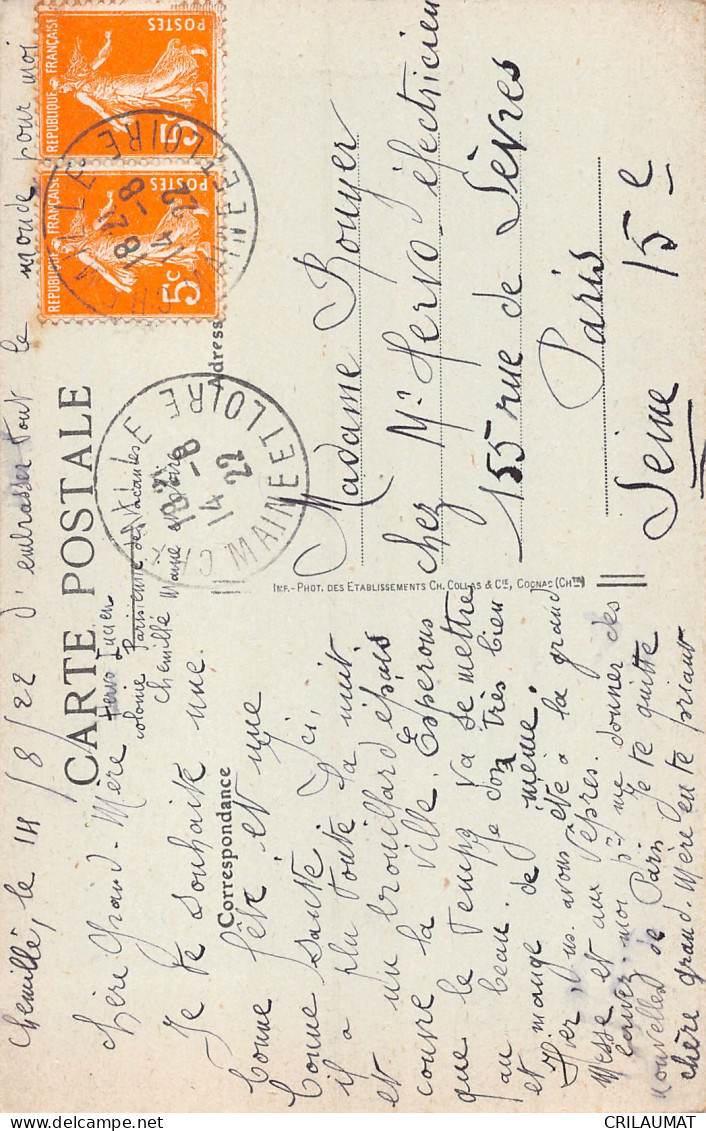 Chemillé, le 14/8/22
CARTE POSTALE
Correspondance
Adresse
Chère Grand-Mère
Je te souhaite une
bonne fête et une
bonne santé. Ici,
il a plu toute la nuit
et un brouillard épais
couvre la ville. Esperons
que le temps va se mettre
au beau. Je dors très bien
et mange de même.
Hier, ns. avons été à la grand
Messe et aux Vêpres.
Ecrivez-moi p^r me donner des
nouvelles de Paris Je te quitte
chère grand-Mère en te priant
d'embrasser tout le monde pour moi
Hervo Lucien
colonie Parisienne des Vacances
Chemillé Maine et Loire
Madame Rouyer
chez M^r Hervo électricien
155 rue de Sèvres
Paris 15^e
Seine
IMP.-PHOT. DES ETABLISSEMENTS CH. COLLAS & CIE, COGNAC (CHTE)
REPUBLIQUE FRANÇAISE
POSTES
5c
REPUBLIQUE FRANÇAISE
POSTES
5c
MAINE ET LOIRE
14 -8
22
MAINE ET LOIRE
14 -8
22
www.delcampe.net
CRILAUMAT